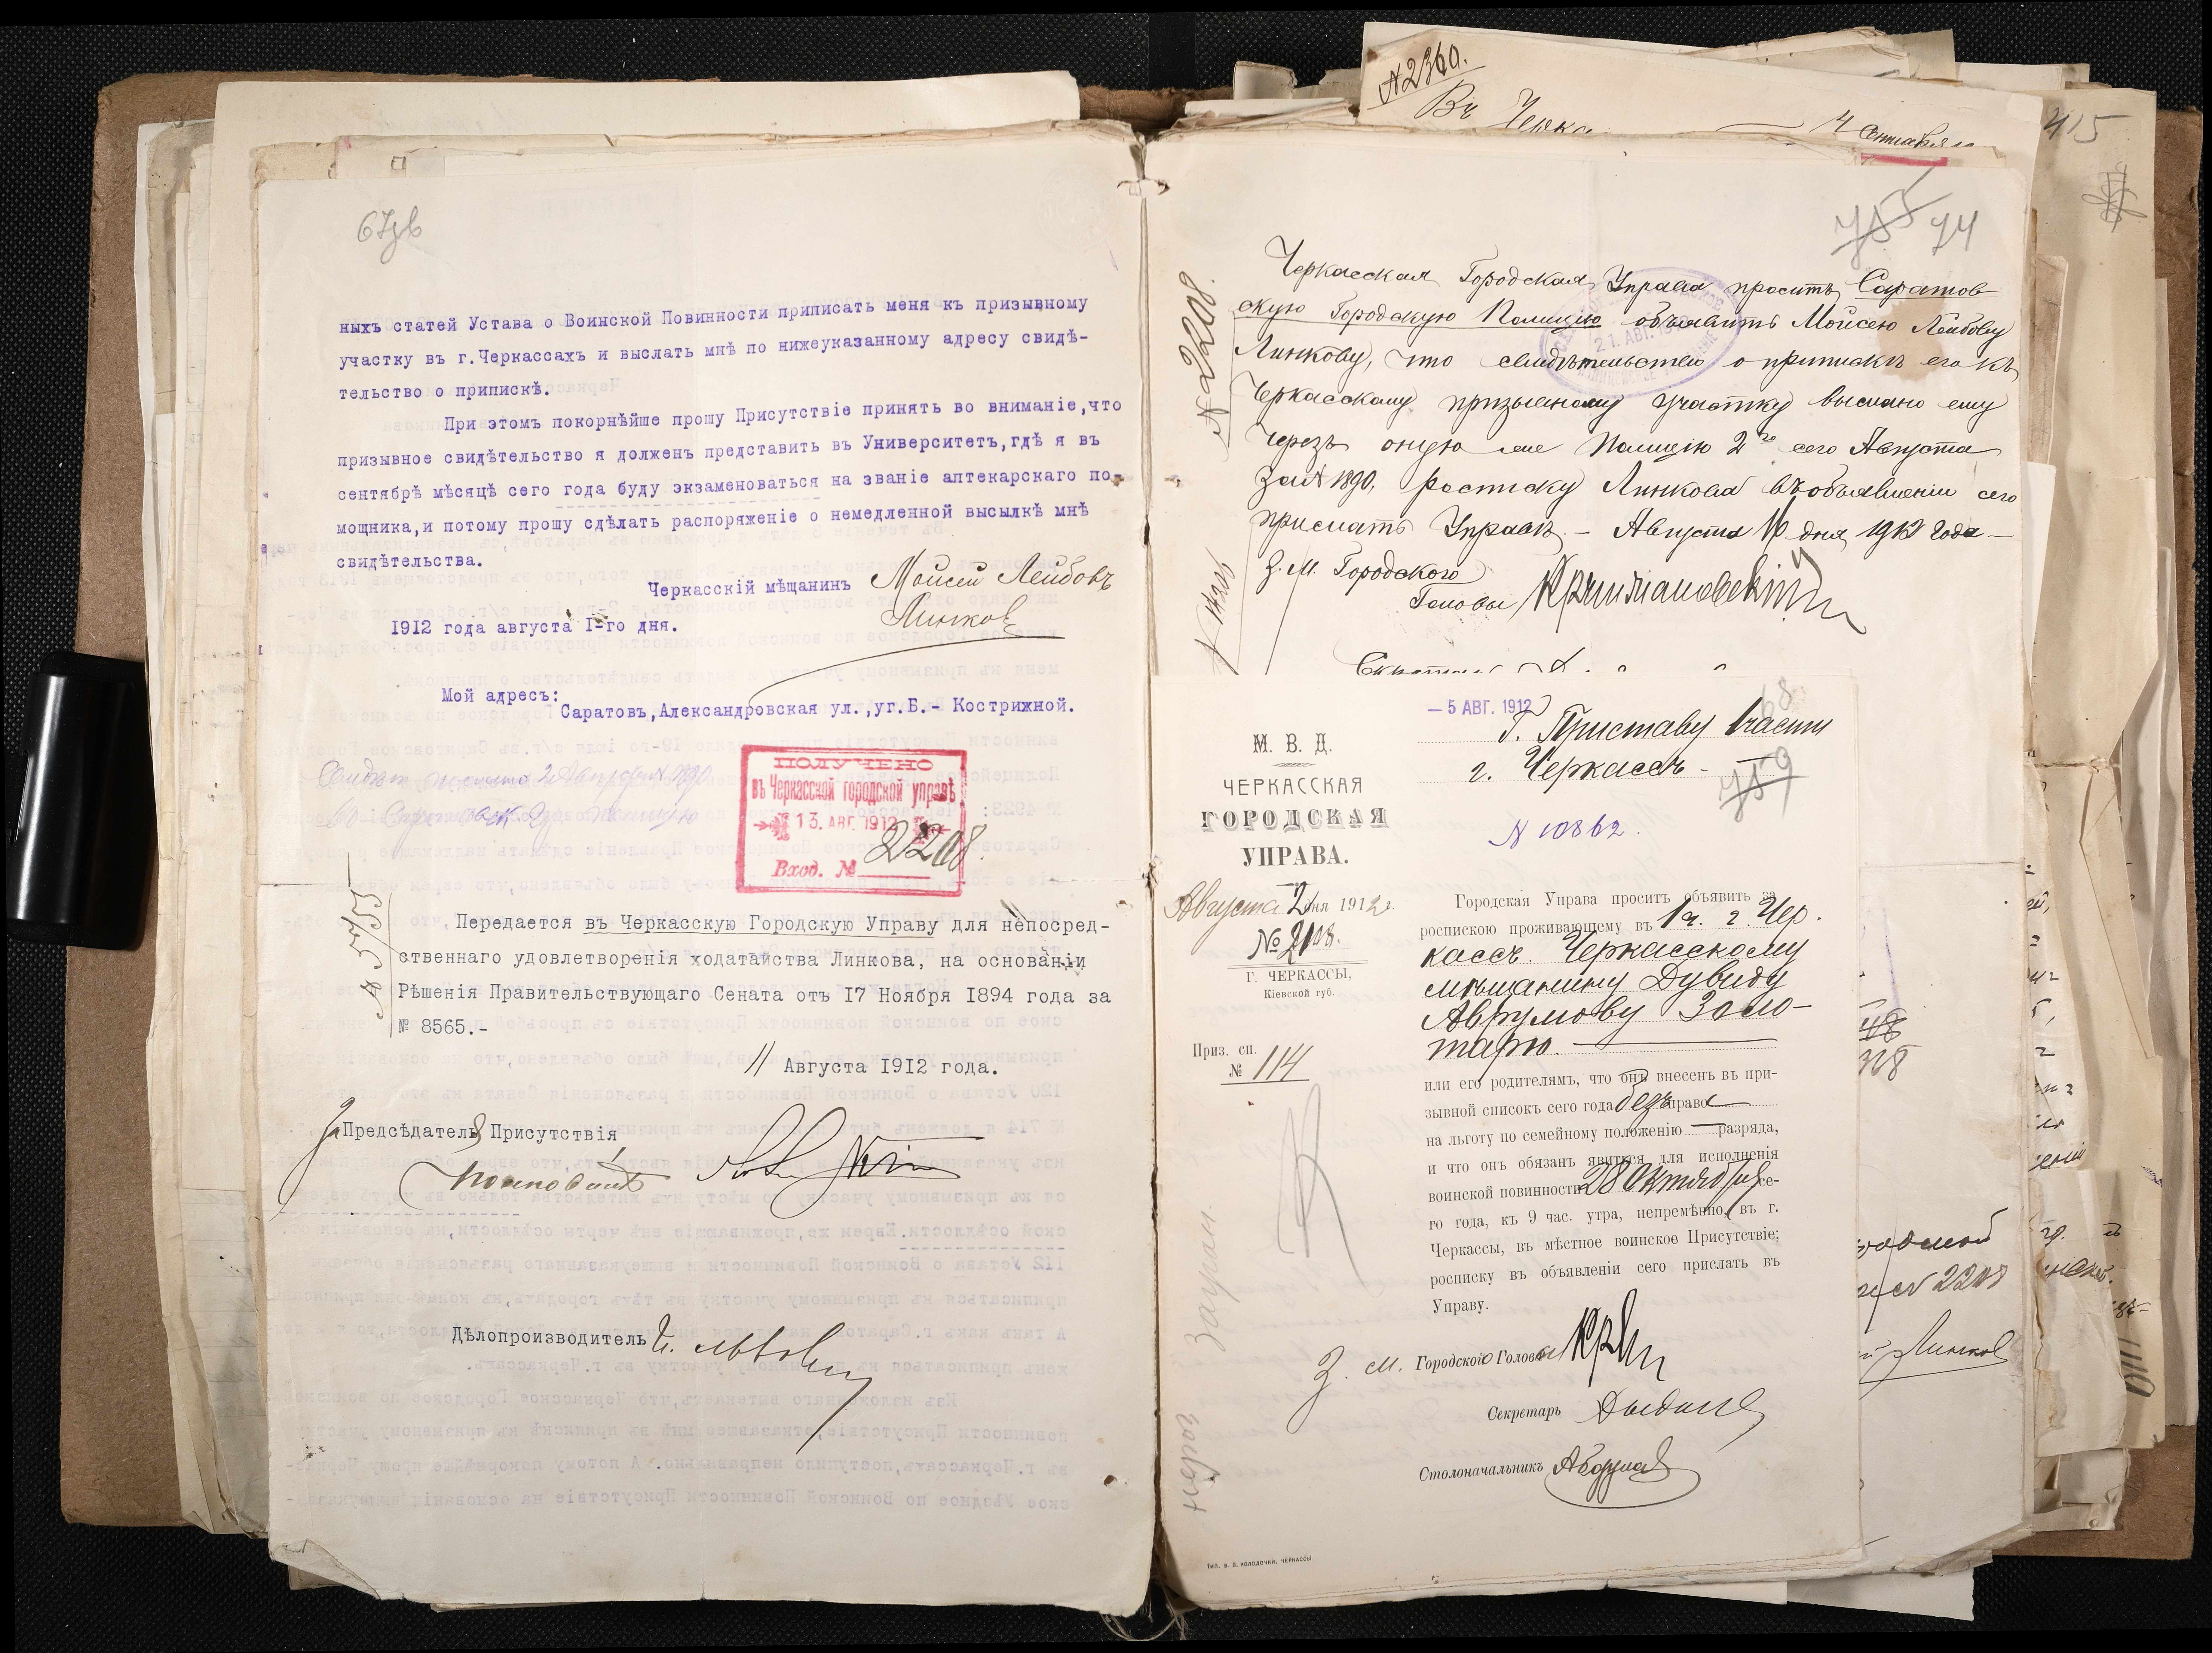 67об
ныхъ статей Устава о Воинской Повинности приписать меня къ призывному
участку въ г.Черкассахъ и выслать мнѣ по нижеуказанному адресу свидѣ-
тельство о припискѣ.
При этомъ покорнѣйше прошу Присутствіе принять во вниманіе,что
призывное свидѣтельство я долженъ представить въ Университетъ,гдѣ я въ
сентябрѣ мѣсяцѣ сего года буду экзаменоваться на званіе аптекарскаго по-
мощника,и потому прошу сдѣлать распоряженіе о немедленной высылкѣ мнѣ
свидѣтельства.
Черкасскій мѣщанинъ Мойсей Лейбовъ
Линковъ
1912 года августа I-го дня.
Мой адресъ:
Саратовъ,Александровская ул.,уг.Б.- Кострижной.
ПОЛУЧЕНО
въ Черкасской городской управѣ
13. АВГ. 1912
Вход. № 2208.
Передается въ Черкасскую Городскую Управу для непосред-
ственнаго удовлетворенія ходатайства Линкова, на основаніи
Рѣшенія Правительствующаго Сената отъ I7 Ноября I894 года за
№ 8565.-
11 Августа I9I2 года.
За Предсѣдателя Присутствія,
Дѣлопроизводитель
№2360.
Въ
4 Сентября
415
755 74
№ 2208.
Черкасская Городская Управа проситъ Саратов
скую Городскую Полицію объявить Мойсею Лейбову
Линкову, что свидѣтельство о припискѣ его къ
Черкасскому призывному участку выслано ему
черезъ оную же Полицію 2го сего Августа
за № 1890, росписку Линкова въ объявленіи сего
прислать Управѣ. – Августа 16 дня 1912 года –
21. АВГ. 1912
З. М. Городского
Головы
– 5 АВГ. 1912
Г. Приставу 1 части
г. Черкассъ.
68
759
№ 10862.
М. В. Д.
ЧЕРКАССКАЯ
ГОРОДСКАЯ
УПРАВА.
Августа 2 дня 1912 г.
№ 2108.
Г. ЧЕРКАССЫ,
Кіевской губ.
Приз. сп.
№ 114
Городская Управа проситъ объявить за
роспискою проживающему въ 1 ч. г. Чер.
кассъ. Черкасскому
мѣщанину Дувиду
Аврумову Золо-
тарю.
или его родителямъ, что онъ внесенъ въ при-
зывной списокъ сего года безъ права
на льготу по семейному положенію — разряда,
и что онъ обязанъ явиться для исполненія
воинской повинности 28 Октября се-
го года, къ 9 час. утра, непремѣнно, въ г.
Черкассы, въ мѣстное воинское Присутствіе;
росписку въ объявленіи сего прислать въ
Управу.
З. М. Городского Головы
Секретарь
Столоначальникъ
ТИП. В. В. КОЛОДОЧКИ, ЧЕРКАССЫ
№ 2208
Линковъ